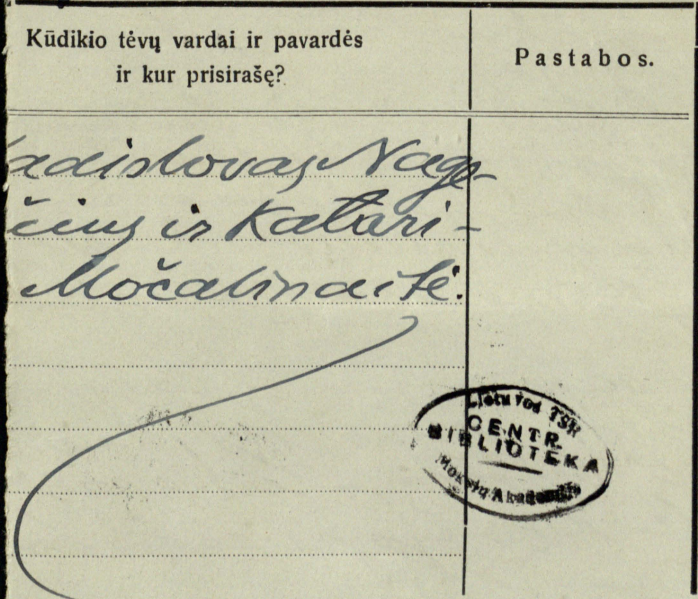 Kūdikio tėvų vardai ir pavardės
ir kur prisirašę?
Pastabos.
adislovas Nage-
čius ir Katari-
Močalinaitė.
Lietuvos TSR
CENTR.
BIBLIOTEKA
Mokslų Akademija